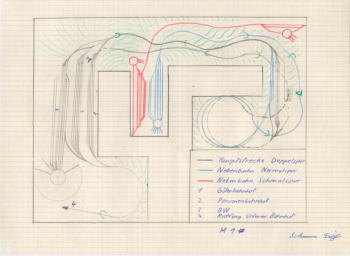 Hauptstrecke Doppelspur
Nebenbahn Normalspur
Nebenbahn Schmalspur
1 Güterbahnhof
2 Personenbahnhof
3 BW
4 Richtung Unterer Bahnhof
M 1:
4